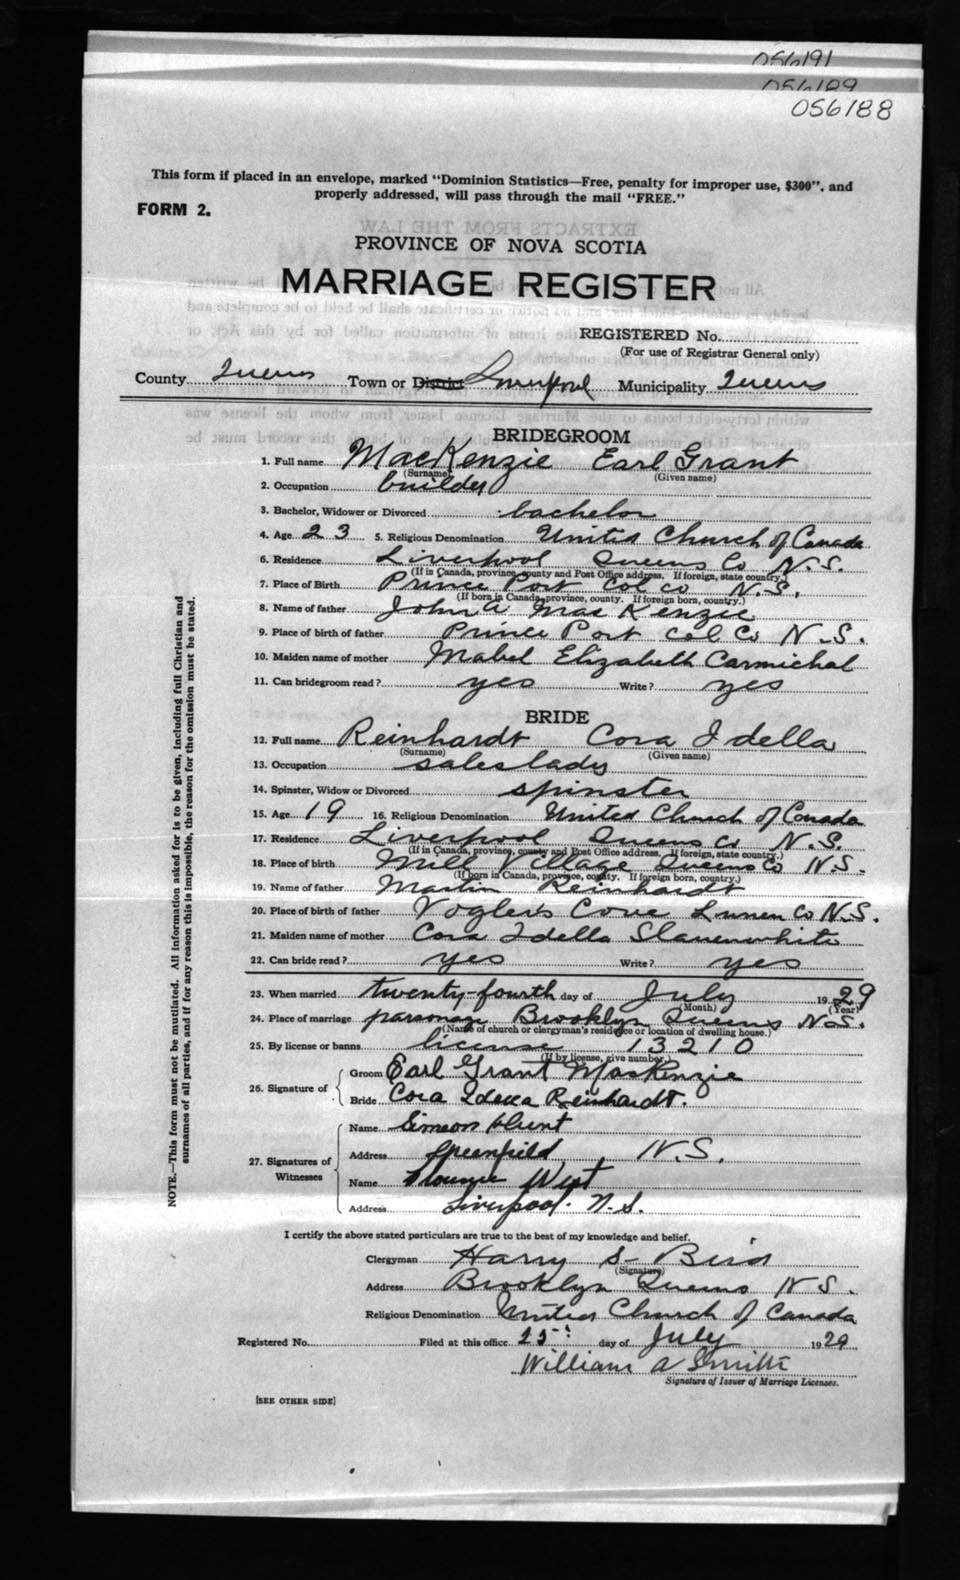 056191
056189
056188
This form if placed in an envelope, marked "Dominion Statistics—Free, penalty for improper use, $300", and
properly addressed, will pass through the mail "FREE."
FORM 2.
PROVINCE OF NOVA SCOTIA
MARRIAGE REGISTER
REGISTERED No.
(For use of Registrar General only)
County Queens Town or District Liverpool Municipality Queens
BRIDEGROOM
1. Full name MacKenzie Earl Grant
(Surname) (Given name)
2. Occupation builder
3. Bachelor, Widower or Divorced bachelor
4. Age 23 5. Religious Denomination United Church of Canada
6. Residence Liverpool Queens Co N.S.
(If in Canada, province, county and Post Office address. If foreign, state country.)
7. Place of Birth Prince Port Col Co N.S.
(If born in Canada, province, county. If foreign born, country.)
8. Name of father John A MacKenzie
9. Place of birth of father Prince Port Col Co N.S.
10. Maiden name of mother Mabel Elizabeth Carmichal
11. Can bridegroom read? yes Write? yes
BRIDE
12. Full name Reinhardt Cora Idella
(Surname) (Given name)
13. Occupation saleslady
14. Spinster, Widow or Divorced spinster
15. Age 19 16. Religious Denomination United Church of Canada
17. Residence Liverpool Queens Co N.S.
(If in Canada, province, county and Post Office address. If foreign, state country.)
18. Place of birth Mill Village Queens Co N.S.
(If born in Canada, province, county. If foreign born, country.)
19. Name of father Martin Reinhardt
20. Place of birth of father Vogler's Cove Lunen Co N.S.
21. Maiden name of mother Cora Idella Slauenwhite
22. Can bride read? yes Write? yes
23. When married twenty-fourth day of July 1929
(Month) (Year)
24. Place of marriage parsonage Brooklyn Queens N.S.
(Name of church or clergyman's residence or location of dwelling house.)
25. By license or banns license 13210
(If by license, give number.)
26. Signature of Groom Earl Grant MacKenzie
Bride Cora Idella Reinhardt.
27. Signatures of Witnesses
Name Simeon Hunt
Address Greenfield N.S.
Name Florence West
Address Liverpool. N.S.
I certify the above stated particulars are true to the best of my knowledge and belief.
Clergyman Harry S. Bird
(Signature)
Address Brooklyn Queens N.S.
Religious Denomination United Church of Canada
Registered No. Filed at this office 25th day of July 1929
William A Smith
Signature of Issuer of Marriage Licenses.
[SEE OTHER SIDE]
NOTE.—This form must not be mutilated. All information asked for is to be given, including full Christian and
surnames of all parties, and if for any reason this is impossible, the reason for the omission must be stated.